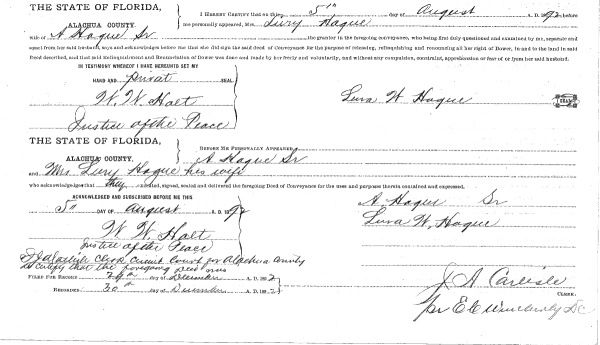 THE STATE OF FLORIDA,
ALACHUA COUNTY.
I HEREBY CERTIFY that on this 5th day of August A. D. 1892 before
me personally appeared, Mrs. Lury Hague
wife of A Hague Sr the grantor in the foregoing conveyance, who being first duly questioned and examined by me, separate and
apart from her said husband, says and acknowledges before me that she did sign the said deed of Conveyance for the purpose of releasing, relinquishing and renouncing all her right of Dower, in and to the land in said
Deed described, and that said Relinquishment and Renunciation of Dower was done and made by her freely and voluntarily, and without any compulsion, constraint, apprehension or fear of or from her said husband.
IN TESTIMONY WHEREOF I HAVE HEREUNTO SET MY
HAND AND privat SEAL
W. W. Holt
Justice of the Peace
Lura W Hague SEAL
THE STATE OF FLORIDA,
ALACHUA COUNTY.
BEFORE ME PERSONALLY APPEARED
A Hague Sr
and Mrs Lury Hague his wife
who acknowledged that they executed, signed, sealed and delivered the foregoing Deed of Conveyance for the uses and purposes therein contained and expressed.
ACKNOWLEDGED AND SUBSCRIBED BEFORE ME THIS
5th DAY OF August A. D. 1892
W. W. Holt
Justice of the Peace
A. Hague Sr
Lura W. Hague
Clerk Circuit Court for Alachua County
do certify that the foregoing deed was
FILED FOR RECORD day of December A. D. 1892
RECORDED 30th day of December A. D. 1892
J A Carlisle
CLERK.
per E C DC